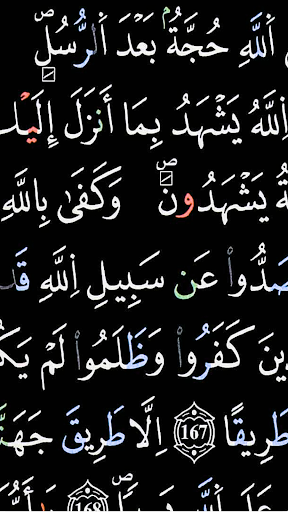 اَللَّهِ حُجَّةُۢ بَعْدَ اَلرُّسُلِۖ
اِللَّهُ يَشْهَدُ بِمَا أَنزَلَ إِلَيْكَ
يَشْهَدُونَۖ وَكَفَىٰ بِاللَّهِ
صَدُّواْ عَن سَبِيلِ اِللَّهِ قَد
كَفَرُواْ وَظَلَمُواْ لَمْ يَكُ
طَرِيقًا 167 اِلَّا طَرِيقَ جَهَنَّ
168